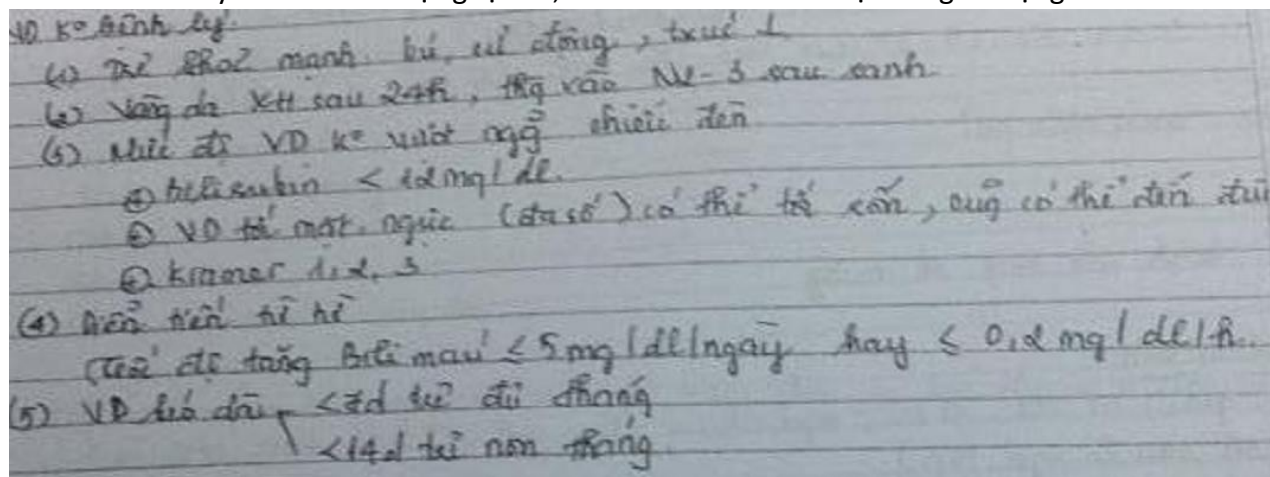 VD Ko bệnh lý.
(1) Trẻ khoẻ mạnh. bú, cử động,
(2) Vàng da XH sau 24h, thg vào N2-3 sau sanh
(3) Mức độ VD Ko vượt ngg chiếu đèn
bilirubin < 12mg/dl.
VD tới mặt, ngực (đa số) có thể tới, cũg có thể đến đùi
Kramer 1,2,3
(4) Diễn tiến từ từ
(Tốc độ tăng Bili máu ≤ 5mg/dl/ngày hay ≤ 0,2mg/dl/h.
(5) VD kéo dài <7d trẻ đủ tháng
<14d trẻ non tháng